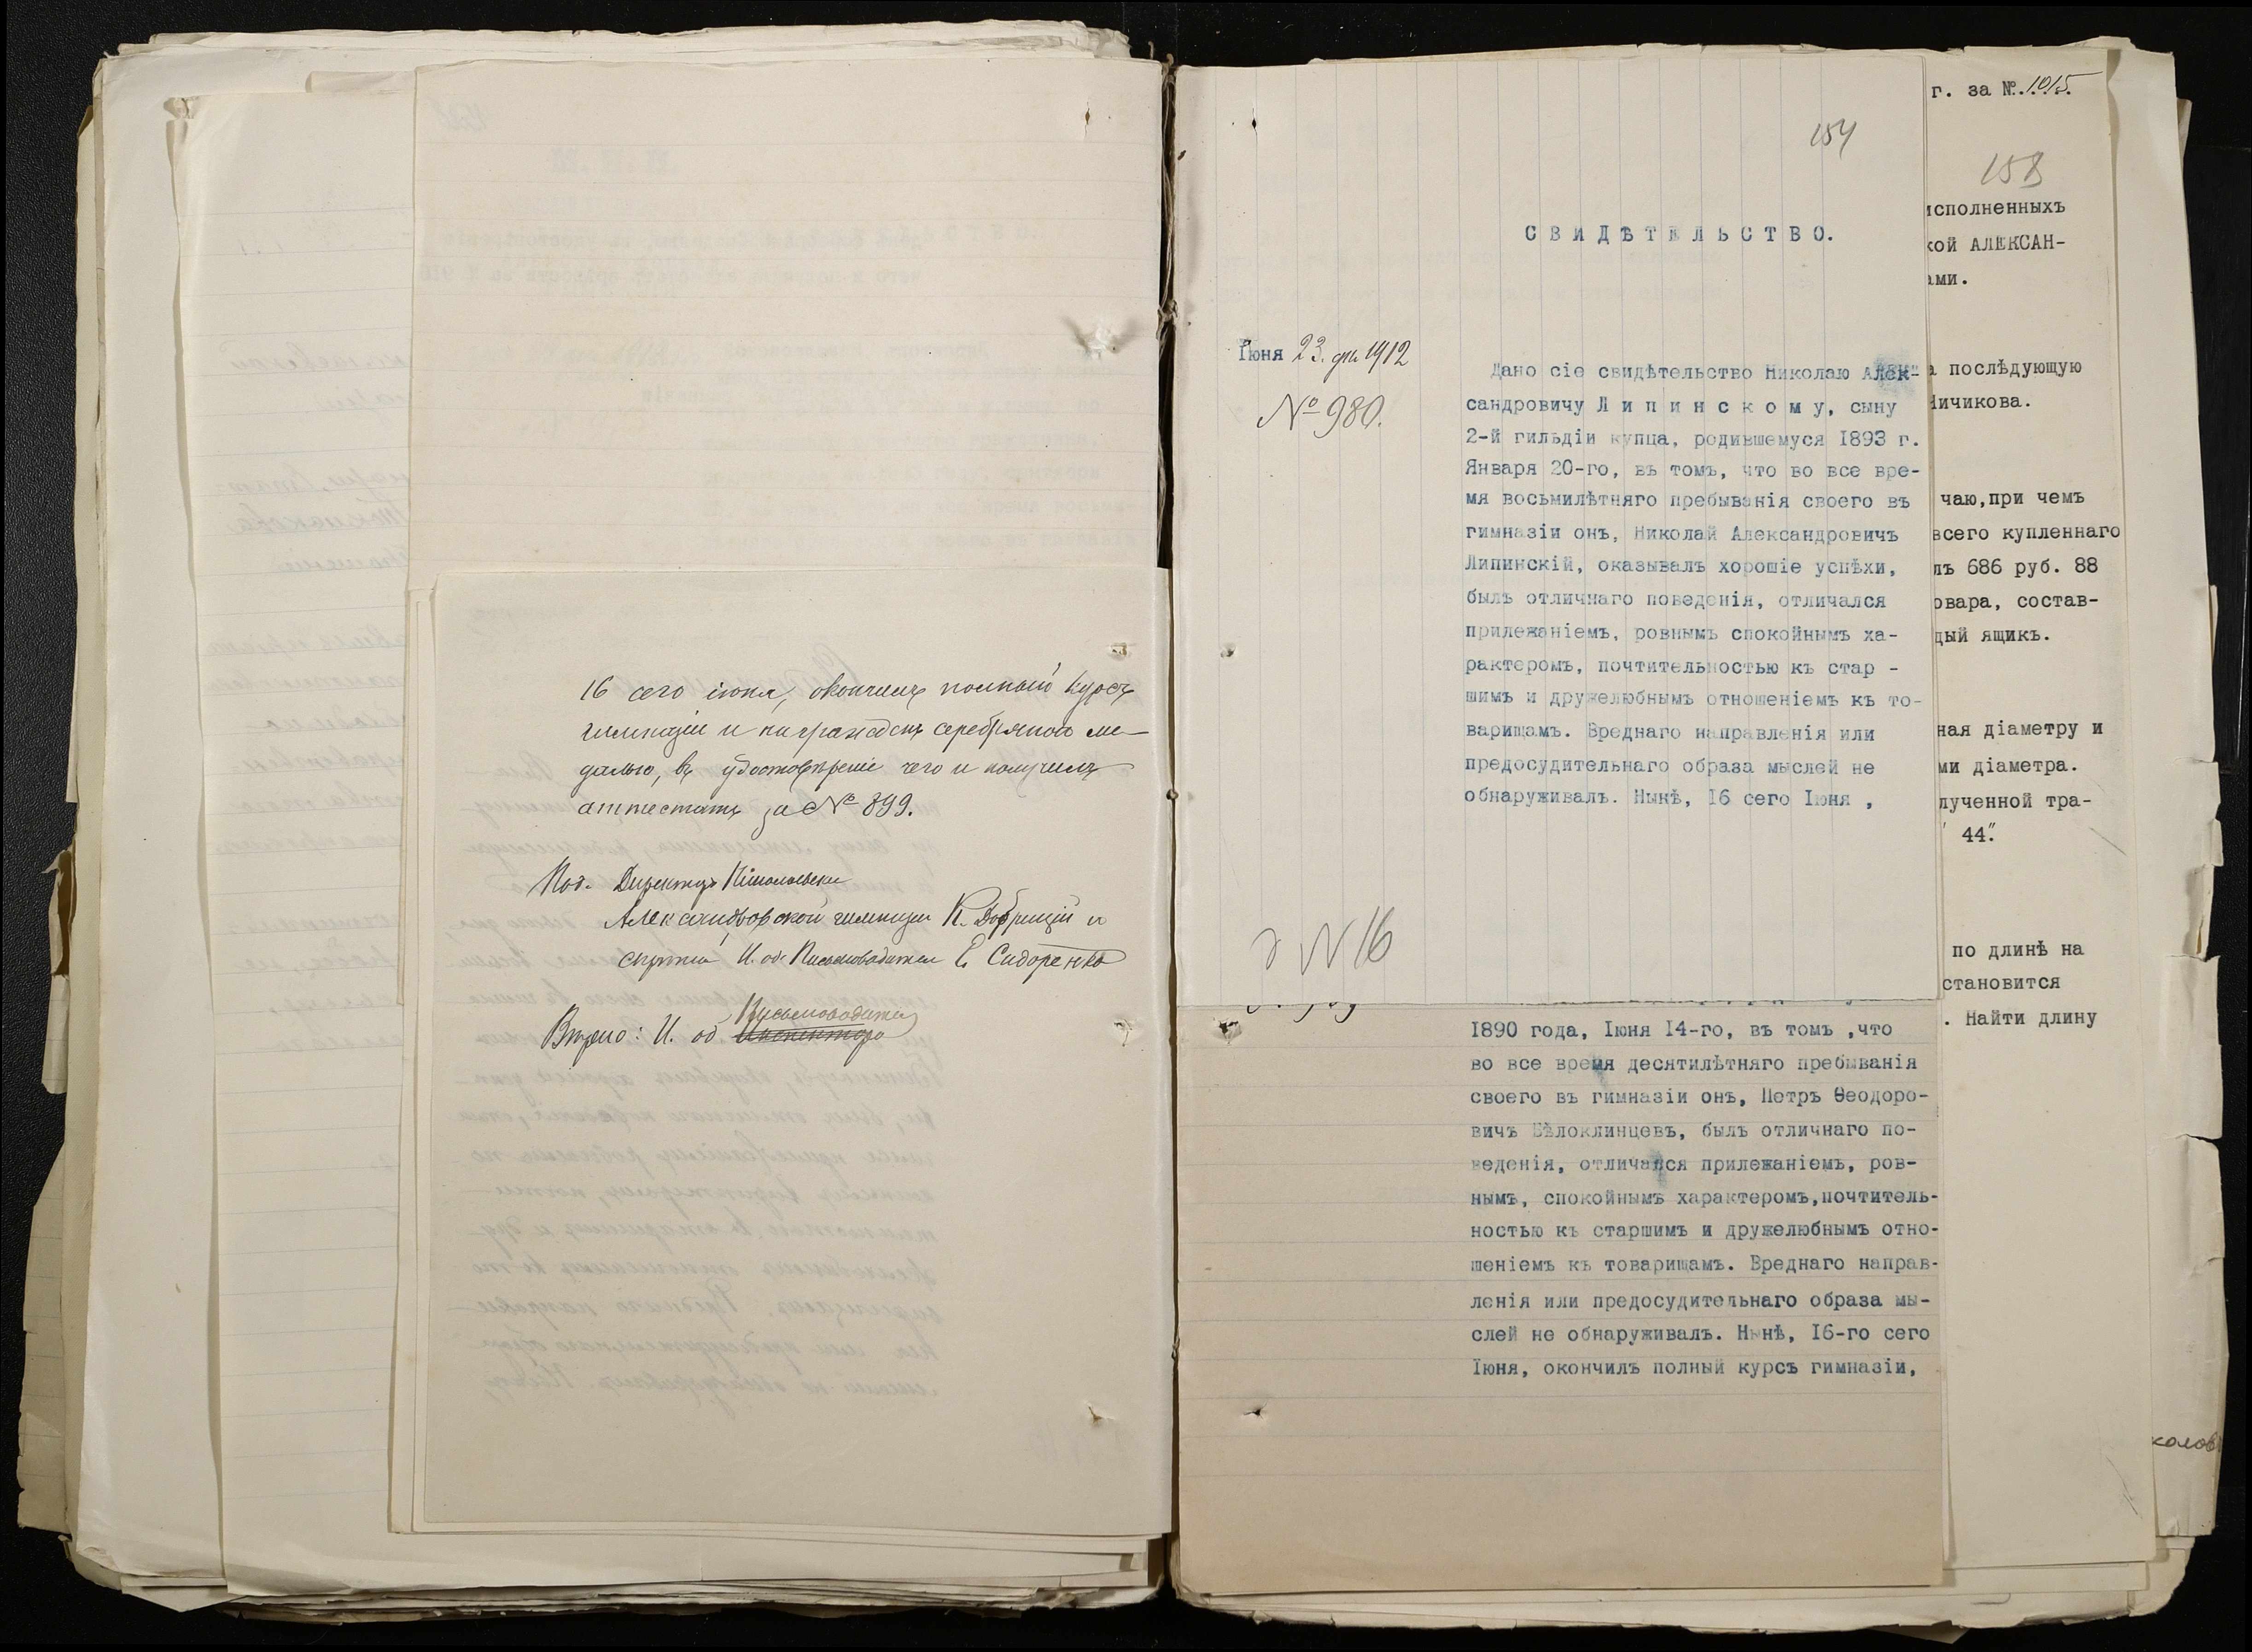 16 сего іюня, окончилъ полный курсъ
гимназіи и награжденъ серебряною ме-
далью, въ удостовѣреніе чего и получилъ
аттестатъ за № 899.
Под. Директоръ Николаевской
Александровской гимназіи К. Добрицкій и
скрѣпилъ И. об. Письмоводителя Е. Сидоренко
Письмоводителя
Вѣрно: И. об.
154
СВИДѢТЕЛЬСТВО.
Іюня 23 дня 1912
№ 980.
Дано сіе свидѣтельство Николаю Алек-
сандровичу Липинскому, сыну
2-й гильдіи купца, родившемуся 1893 г.
Января 20-го, въ томъ, что во все вре-
мя восьмилѣтняго пребыванія своего въ
гимназіи онъ, Николай Александровичъ
Липинскій, оказывалъ хорошіе успѣхи,
былъ отличнаго поведенія, отличался
прилежаніемъ, ровнымъ спокойнымъ ха-
рактеромъ, почтительностью къ стар -
шимъ и дружелюбнымъ отношеніемъ къ то-
варищамъ. Вреднаго направленія или
предосудительнаго образа мыслей не
обнаруживалъ. Нынѣ, 16 сего Іюня ,
N 16
1890 года, Іюня 14-го, въ томъ ,что
во все время десятилѣтняго пребыванія
своего въ гимназіи онъ, Петръ Ѳеодоро-
вичъ Бѣлоклинцевъ, былъ отличнаго по-
веденія, отличался прилежаніемъ, ров-
нымъ, спокойнымъ характеромъ,почтитель-
ностью къ старшимъ и дружелюбнымъ отно-
шеніемъ къ товарищамъ. Вреднаго направ-
ленія или предосудительнаго образа мы-
слей не обнаруживалъ. Нынѣ, 16-го сего
Іюня, окончилъ полный курсъ гимназіи,
г. за №.1015.
158
исполненныхъ
кой АЛЕКСАН-
ами.
а послѣдующую
Чичикова.
чаю,при чемъ
всего купленнаго
лъ 686 руб. 88
овара, состав-
дый ящикъ.
ная діаметру и
ми діаметра.
лученной тра-
44".
по длинѣ на
становится
. Найти длину